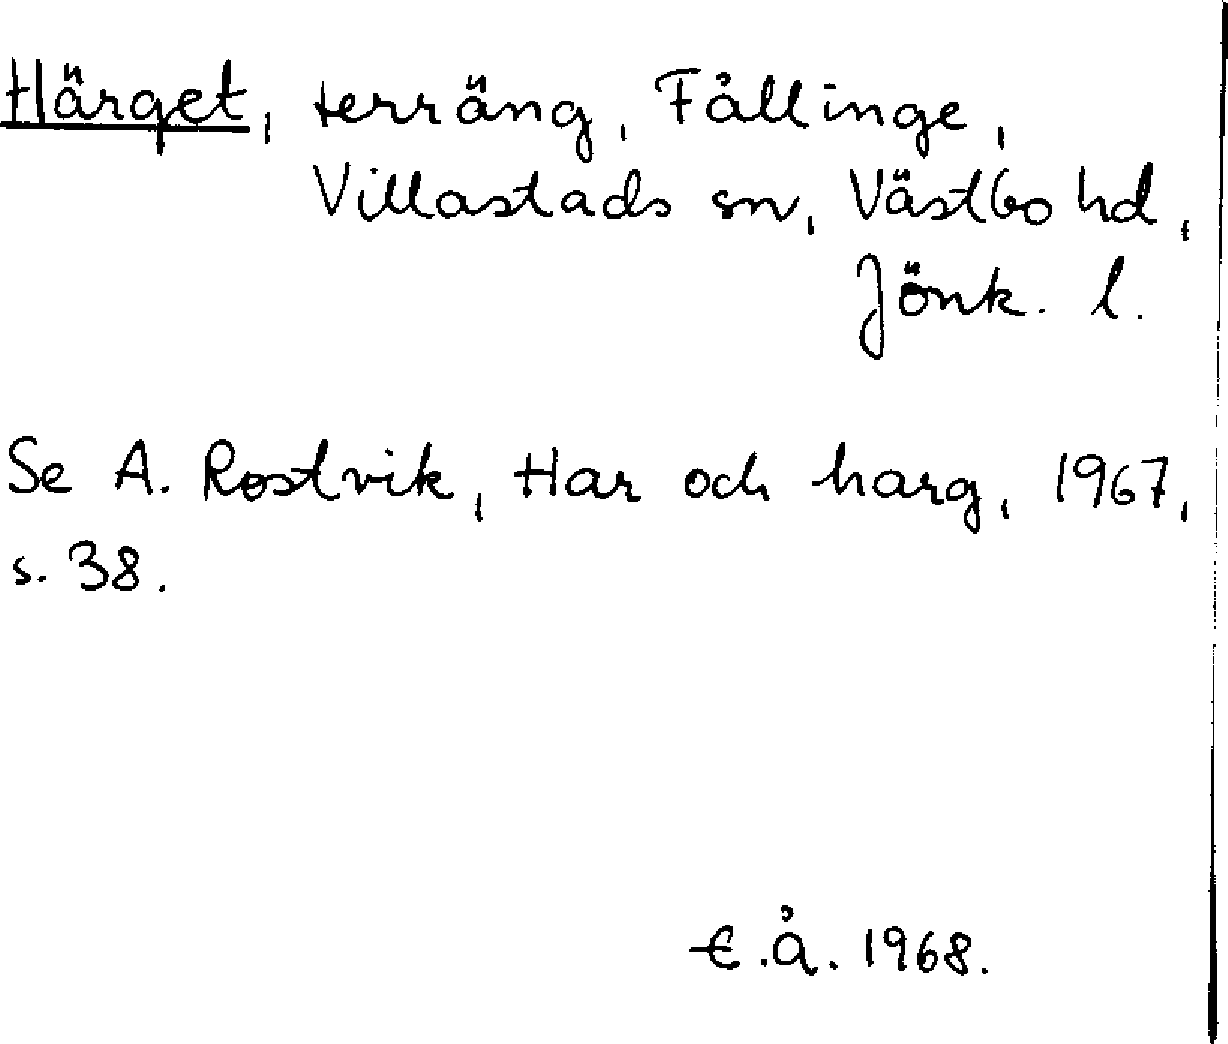 Härget, terräng, Fållinge,
Villastads sn, Västbo hd,
Jönk. l.
Se A. Rostvik, Har och harg, 1967,
s. 38.
E.Å. 1968.